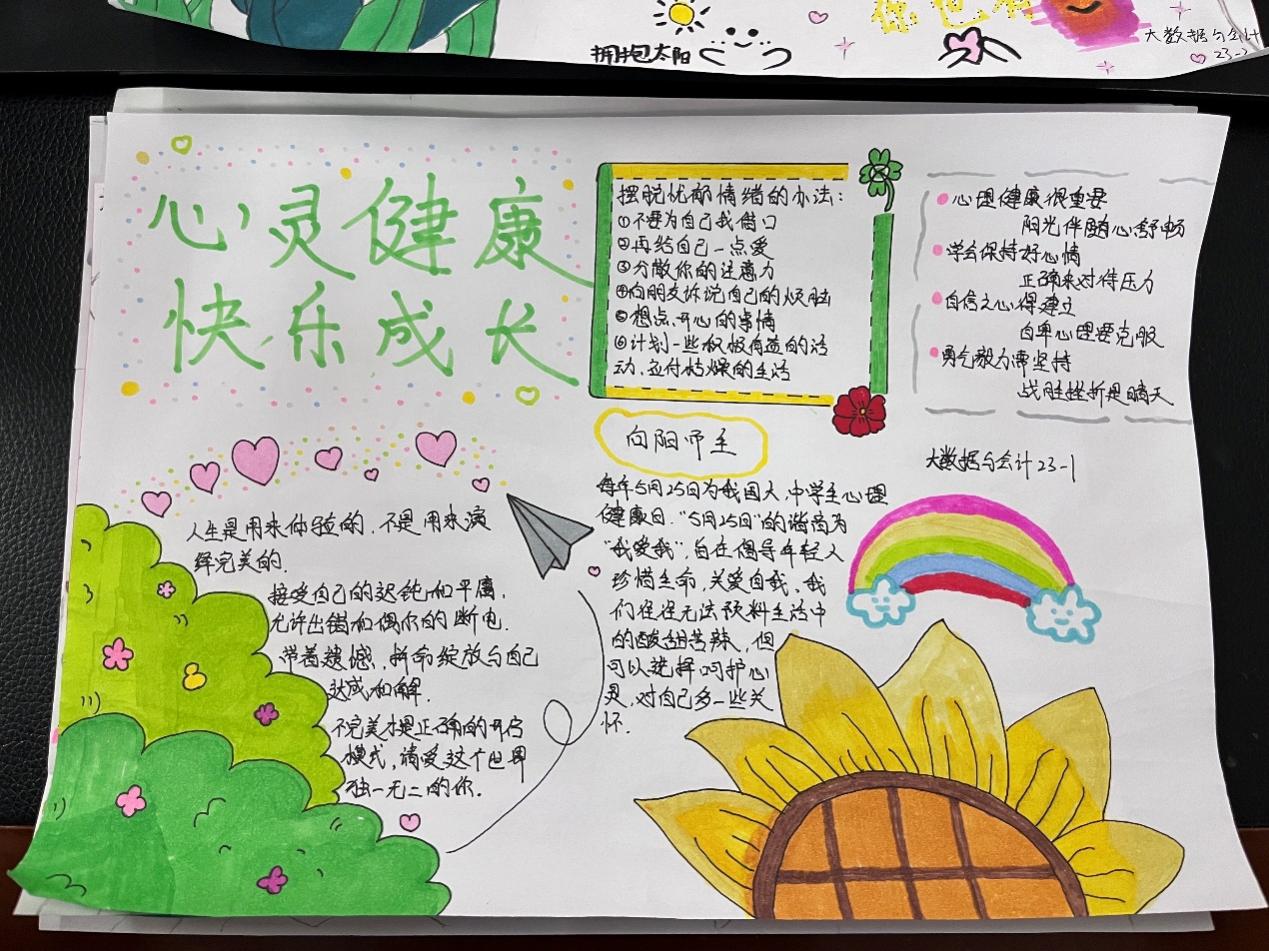 拥抱太阳
你也有
大数据与会计
23-2
心灵健康
快乐成长
摆脱忧郁情绪的办法:
①不要为自己找借口
②再给自己一点爱
③分散你的注意力
④向朋友诉说自己的烦恼
⑤想点开心的事情
⑥计划一些积极有益的活
动,应付枯燥的生活
心理健康很重要
阳光伴随心舒畅
学会保持好心情
正确来对待压力
自信之心得建立
自卑心理要克服
勇气毅力需坚持
战胜挫折是晴天
大数据与会计23-1
人生是用来体验的,不是用来演
绎完美的.
接受自己的迟钝和平庸,
允许出错和偶尔的断电.
带着遗憾,拼命绽放与自己
达成和解.
不完美才是正确的开启
模式,请爱这个世界
独一无二的你.
向阳而生
每年5月25日为我国大、中学生心理
健康日."5月25日"的谐音为
"我爱我",旨在倡导年轻人
珍惜生命,关爱自我.我
们往往无法预料生活中
的酸甜苦辣,但
可以选择呵护心
灵,对自己多一些关
怀.